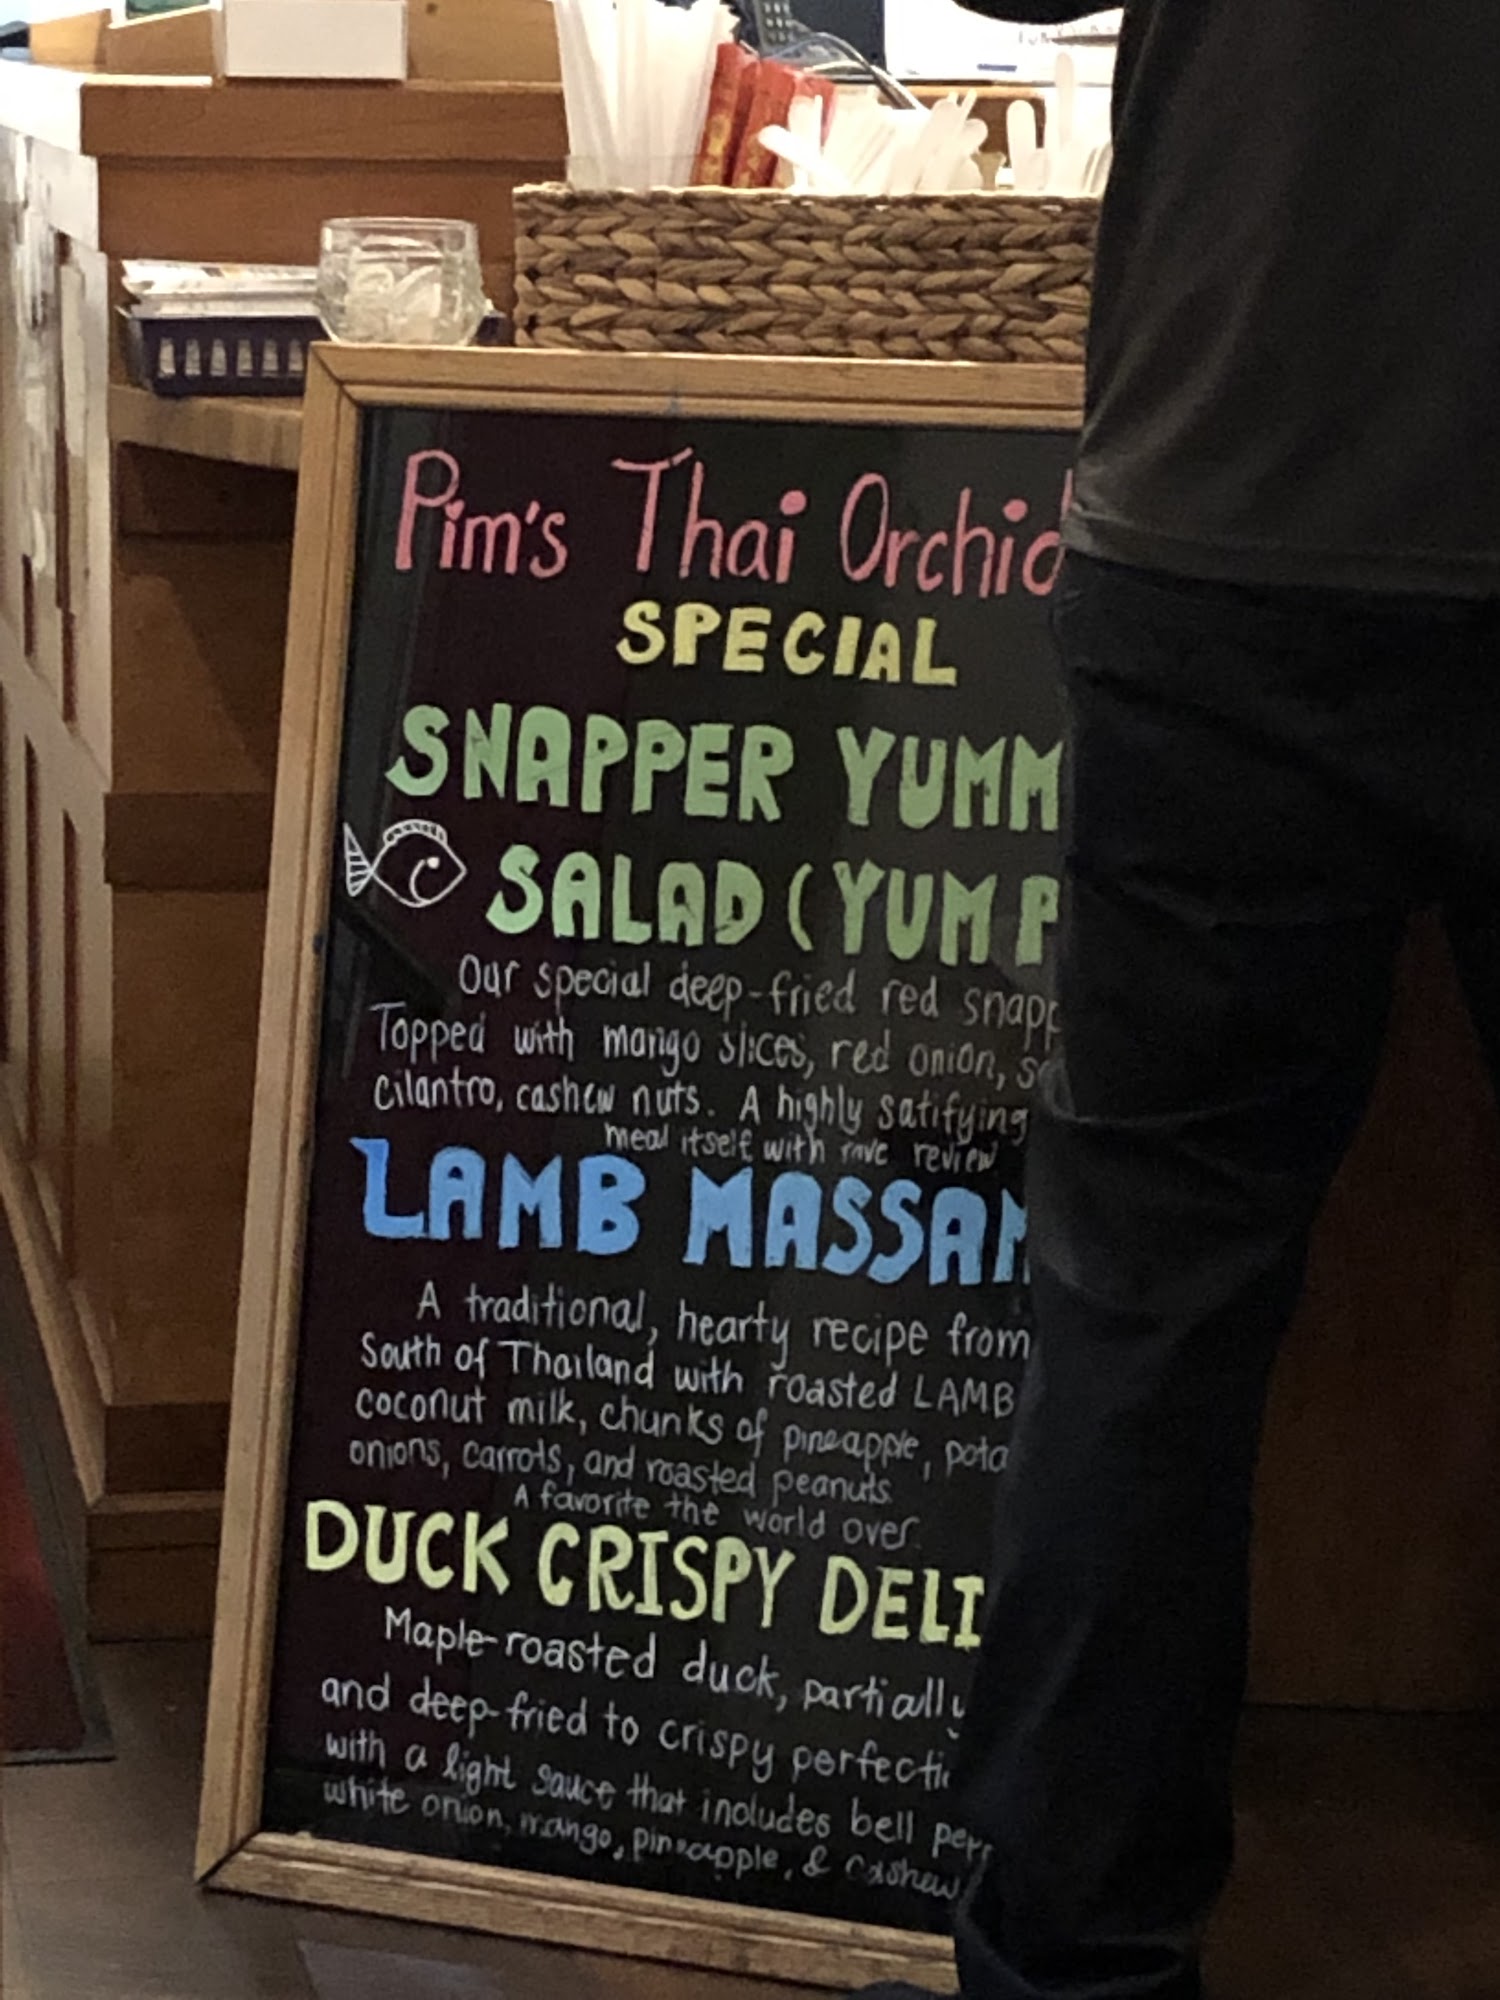 Pim's Thai Orchid
SPECIAL
SNAPPER YUMM
SALAD (YUM P
Our special deep-fried red snapp
Topped with mango slices, red onion,
Cilantro, cashew nuts. A highly satifying
meal itself with rave review
LAMB MASSAM
A traditional, hearty recipe from
South of Thailand with roasted LAMB
coconut milk, chunks of pineapple, pota
onions, carrots, and roasted peanuts.
A favorite the world over.
DUCK CRISPY DELI
Maple-roasted duck, partially
and deep-fried to crispy perfecti
with a light sauce that includes bell pepp
white onion, mango, pineapple, & cashew